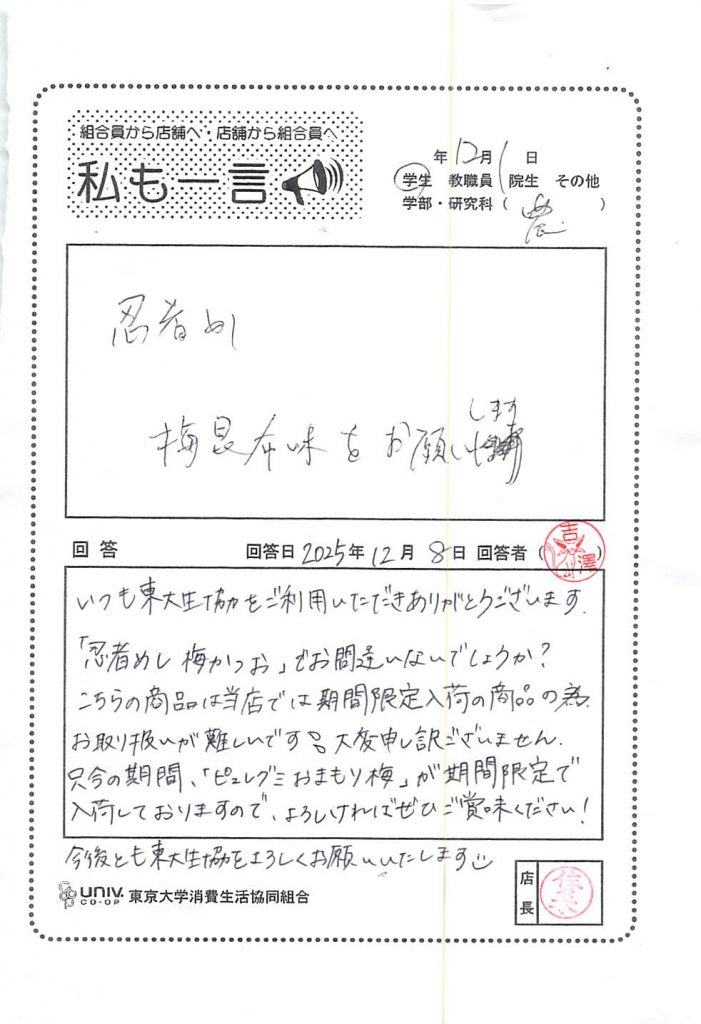 組合員から店舗へ・店舗から組合員へ
私も一言
年12月1日
学生 教職員 院生 その他
学部・研究科（農）
忍者めし
梅昆布味をお願いします
回答 回答日2025年12月8日 回答者（吉澤）
いつも東大生協をご利用いただきありがとうございます.
「忍者めし 梅かつお」でお間違いないでしょうか?
こちらの商品は当店では期間限定入荷の商品の為.
お取り扱いが難しいです。大変申し訳ございません.
只今の期間、「ピュレグミおまもり梅」が期間限定で
入荷しておりますので、よろしければぜひご賞味ください!
今後とも東大生協をよろしくお願いいたします
UNIV. CO-OP 東京大学消費生活協同組合
店長